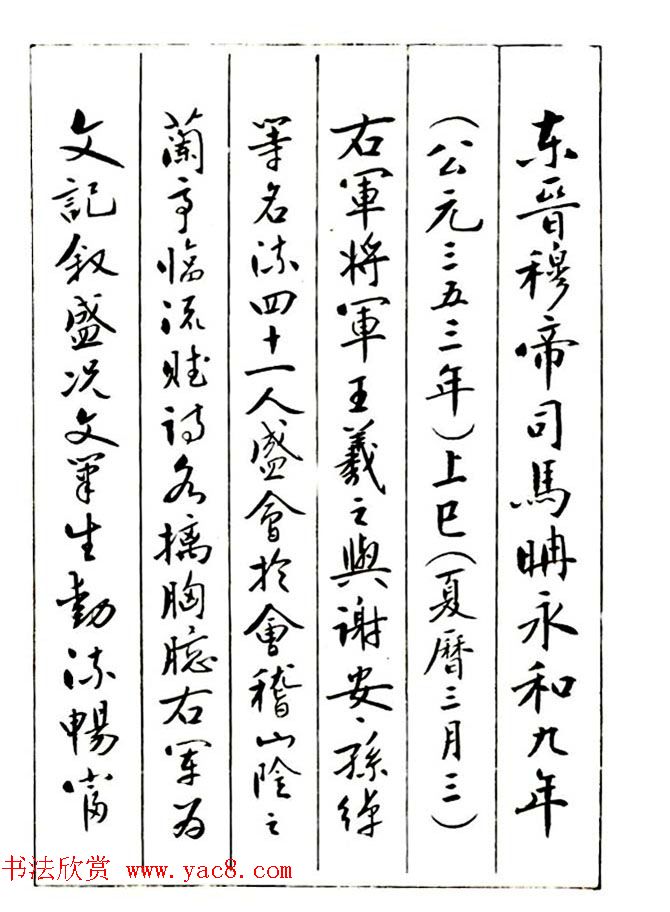 东晉穆帝司馬聃永和九年
（公元三五三年）上巳（夏曆三月三）
右軍将軍王羲之與謝安、孫绰
等名流四十一人盛會於會稽山陰之
蘭亭临流賦诗各摛胸臆右军为
文記叙盛况文筆生動流暢富
书法欣赏 www.yac8.com